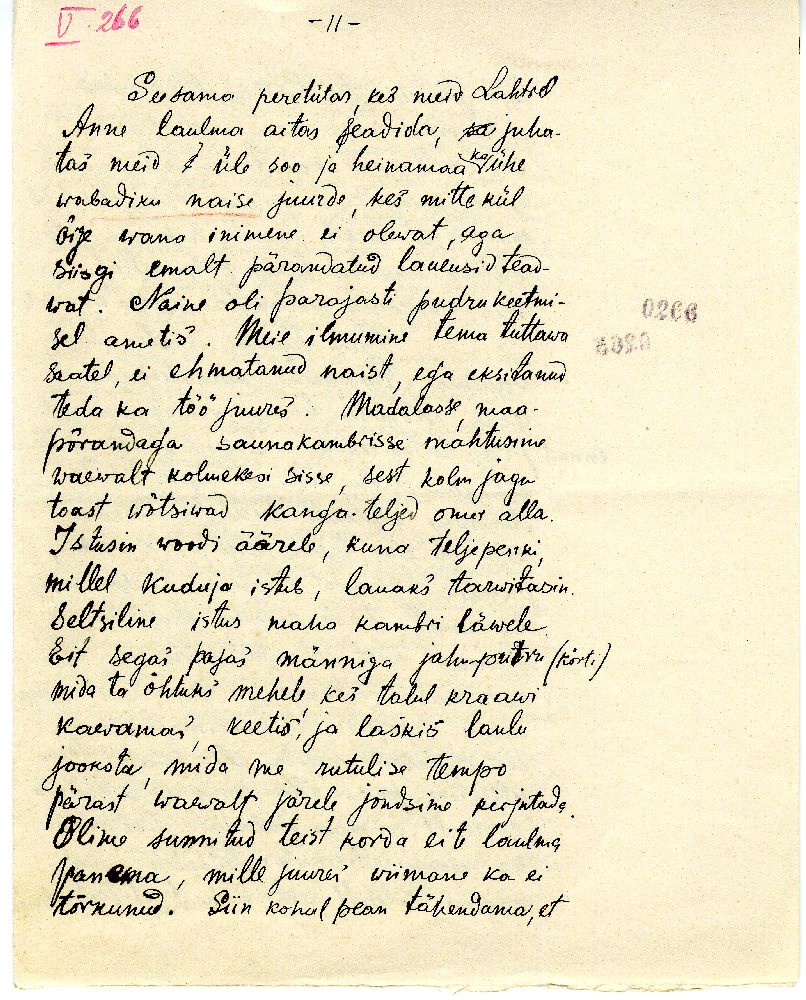 V 266
-11-
Seesama peretütar, kes meid Lahtrd
Anne laulma aitas seadida, sa juha-
tas meid üle soo ja heinamaa ka ühe
wabadiku naise juurde, kes mitte kül
õije wana inimene ei olewat, aga
siisgi emalt pärandatud laulusid tead-
wat. Naine oli parajasti pudrukeetmi-
sel ametis. Meie ilmumine tema tuttawa
saatel, ei ehmatanud naist, ega eksitanud
teda ka töö juures. Madalasse, maa-
põrandaga saunakambrisse mahtusime
waewalt kolmekesi sisse, sest kolm jagu
toast wõtsiwad kanga-teljed omer alla.
Istusin woodi äärele, kuna teljepenki,
millel kuduja istub, lauaks tarwitasin.
Seltsiline istus maha kambri läwele
Eit segas pajas männiga jahuputru (körti)
mida ta õhtuks mehele, kes talul kraawi
kaewamas, keetis, ja laskis laulu
joosta, mida me rutulise tempo
pärast waewalt järele jõudsime kirjutada.
Olime sunnitud teist korda eite laulma
panema, mille juures wiimane ka ei
tõrkunud. Siin kohal pean tähendama, et
0266